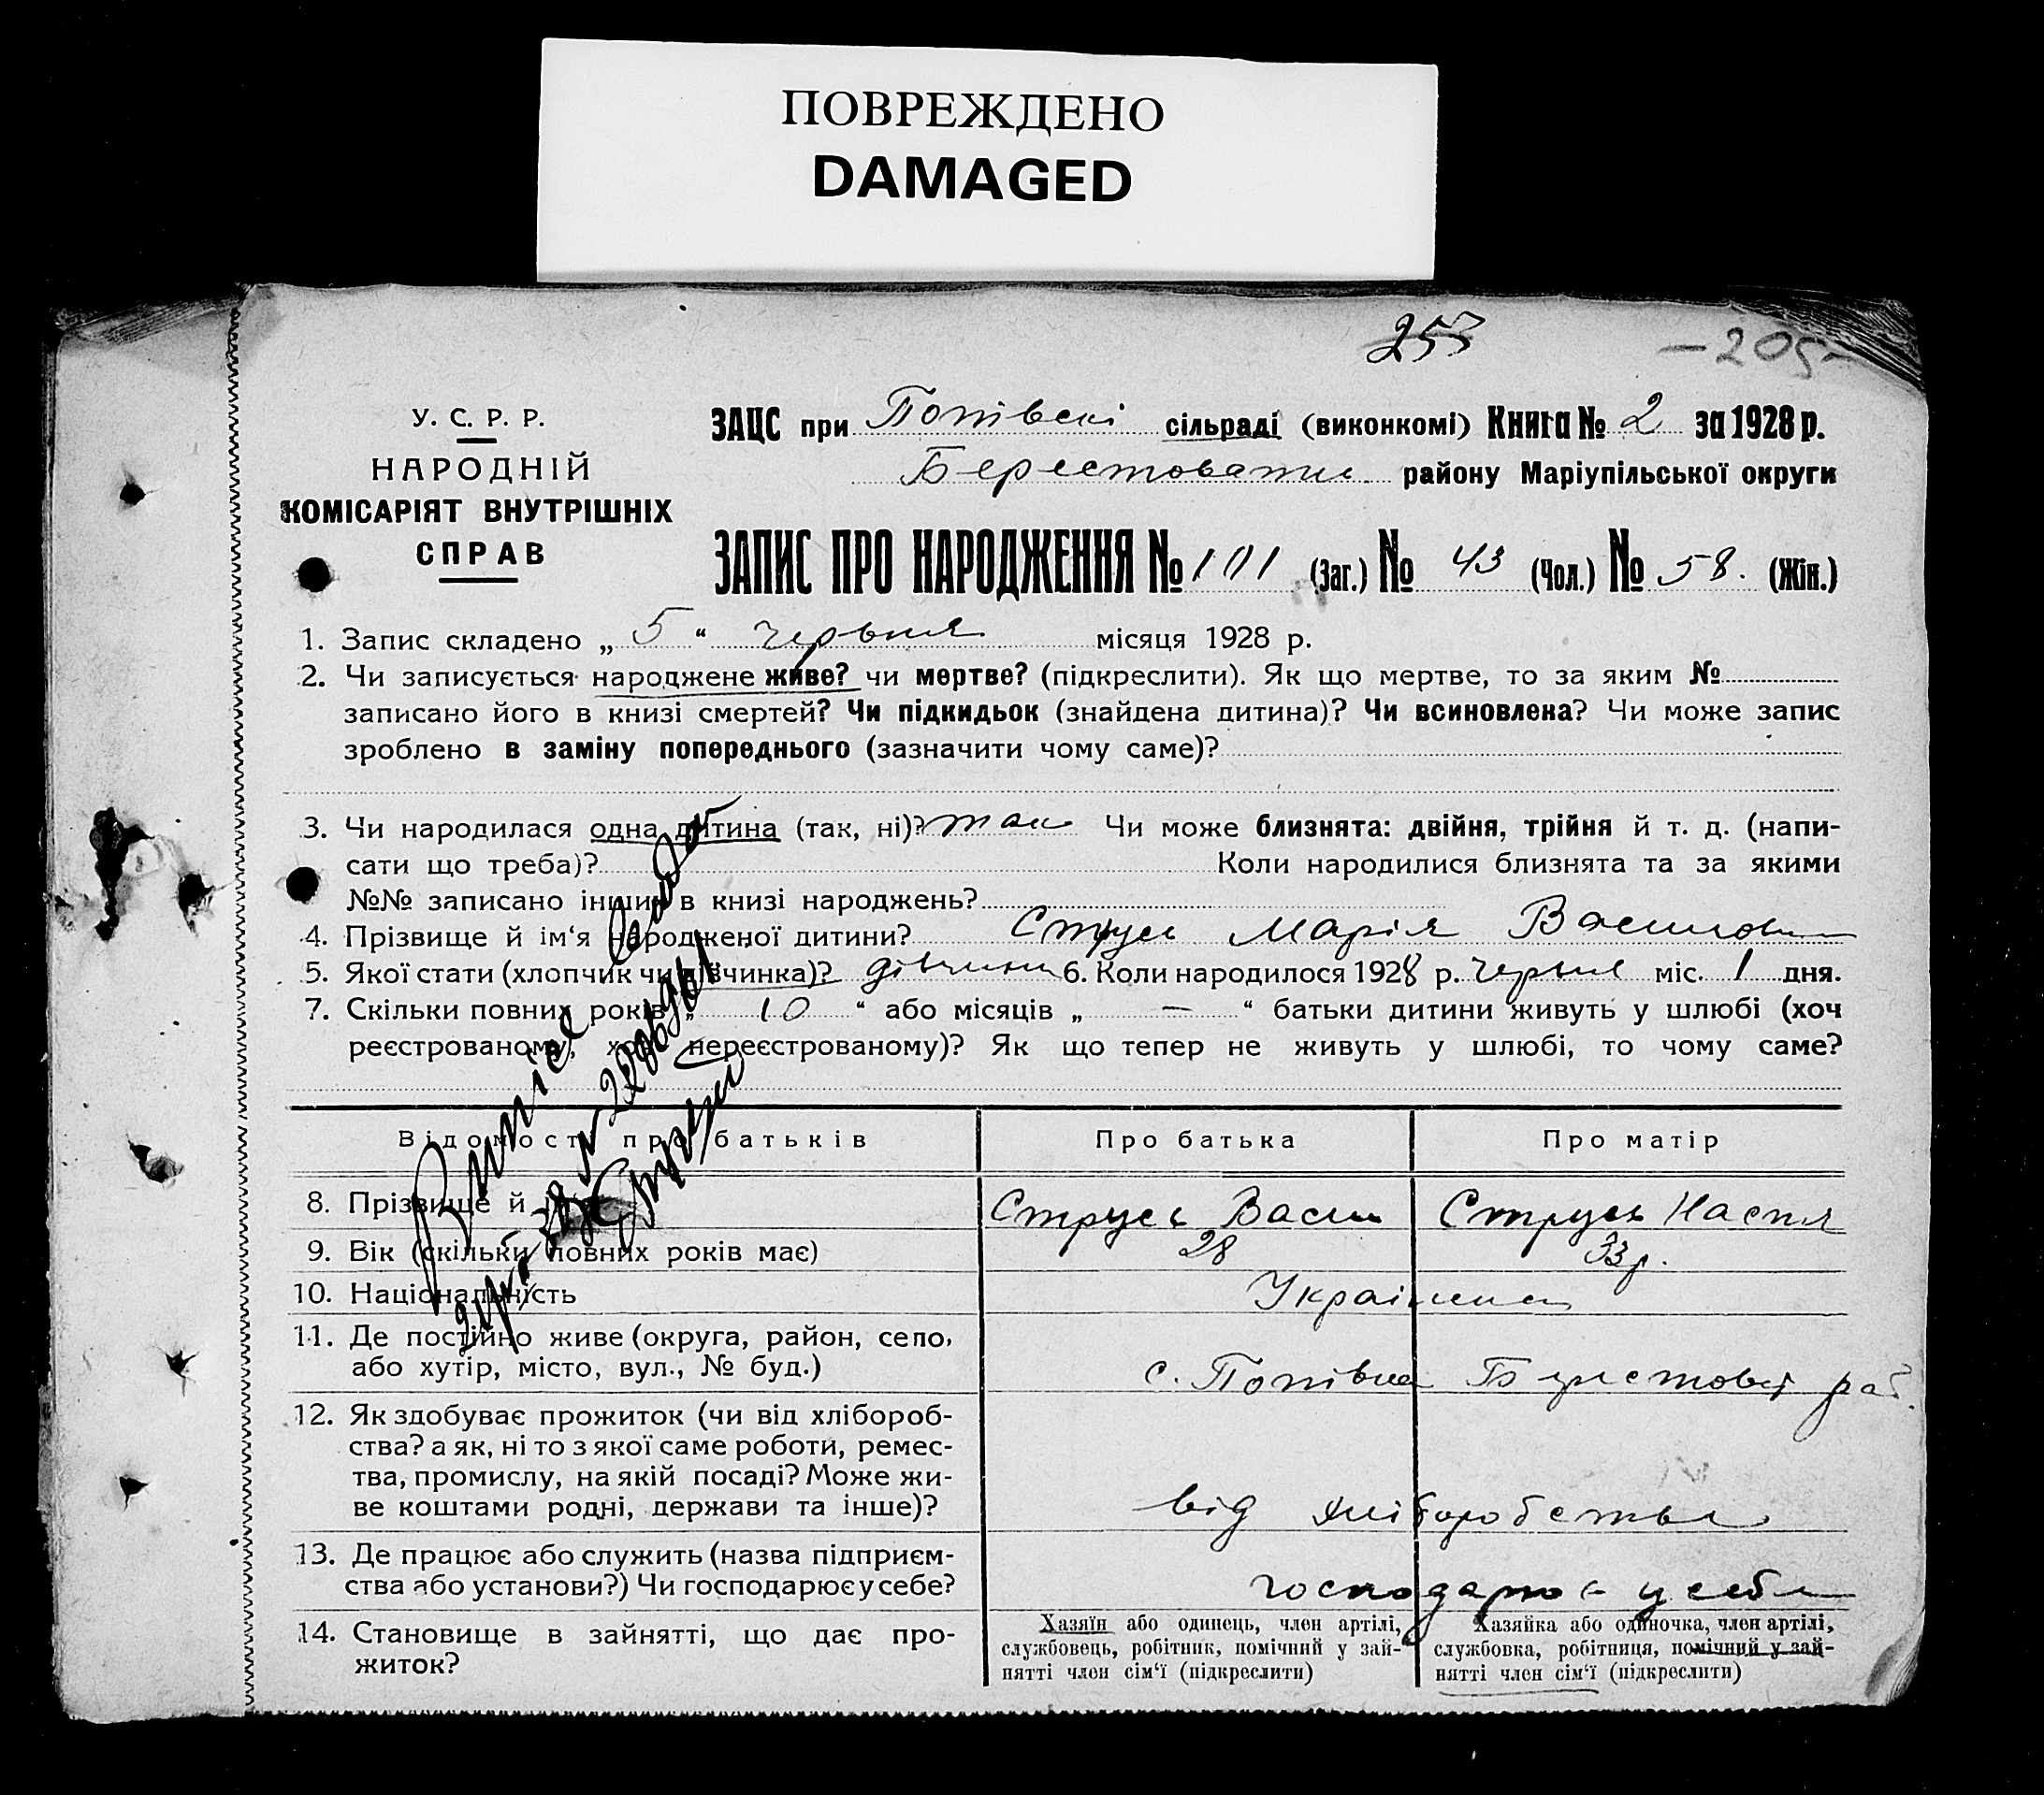 ПОВРЕЖДЕНО
DAMAGED
253
-205-
У. С. Р. Р.
НАРОДНІЙ
КОМІСАРІЯТ ВНУТРІШНІХ
СПРАВ
ЗАЦС при Попівскі сільраді (виконкомі) Книга № 2 за 1928 р.
району Маріупільської округи
ЗАПИС ПРО НАРОДЖЕННЯ № 101 (Заг.) № 43 (Чол.) № 58. (Жін.)
1. Запис складено „ 5 “ червня місяця 1928 р.
2. Чи записується народжене живе? чи мертве? (підкреслити). Як що мертве, то за яким №
записано його в книзі смертей? Чи підкидьок (знайдена дитина)? Чи всиновлена? Чи може запис
зроблено в заміну попереднього (зазначити чому саме)?
3. Чи народилася одна дитина (так, ні)? так Чи може близнята: двійня, трійня й т. д. (напи-
сати що треба)? Коли народилися близнята та за якими
№№ записано інших в книзі народжень?
4. Прізвище й ім‘я народженої дитини? Струсь Марія
5. Якої стати (хлопчик чи дівчинка)? дівчина 6. Коли народилося 1928 р. червня міс. 1 дня.
7. Скільки повних років „ 10 “ або місяців „ — “ батьки дитини живуть у шлюбі (хоч
реєстрованому, хоч нереєстрованому)? Як що тепер не живуть у шлюбі, то чому саме?
Відомості про батьків
Про батька
Про матір
8. Прізвище й
Струсь Васил
Струсь Настя
9. Вік (скільки повних років має)
28
33 р.
10. Національність
11. Де постійно живе (округа, район, село,
або хутір, місто, вул., № буд.)
с. Попівка
12. Як здобуває прожиток (чи від хлібороб-
ства? а як, ні то з якої саме роботи, ремес-
тва, промислу, на якій посаді? Може жи-
ве коштами родні, держави та інше)?
від хліборобства
13. Де працює або служить (назва підприєм-
ства або установи?) Чи господарює у себе?
господарює у себе
14. Становище в зайнятті, що дає про-
житок?
Хазяїн або одинець, член артілі,
службовець, робітник, помічний у зай-
нятті член сім‘ї (підкреслити)
Хазяйка або одиночка, член артілі,
службовка, робітниця, помічний у зай-
нятті член сім‘ї (підкреслити)